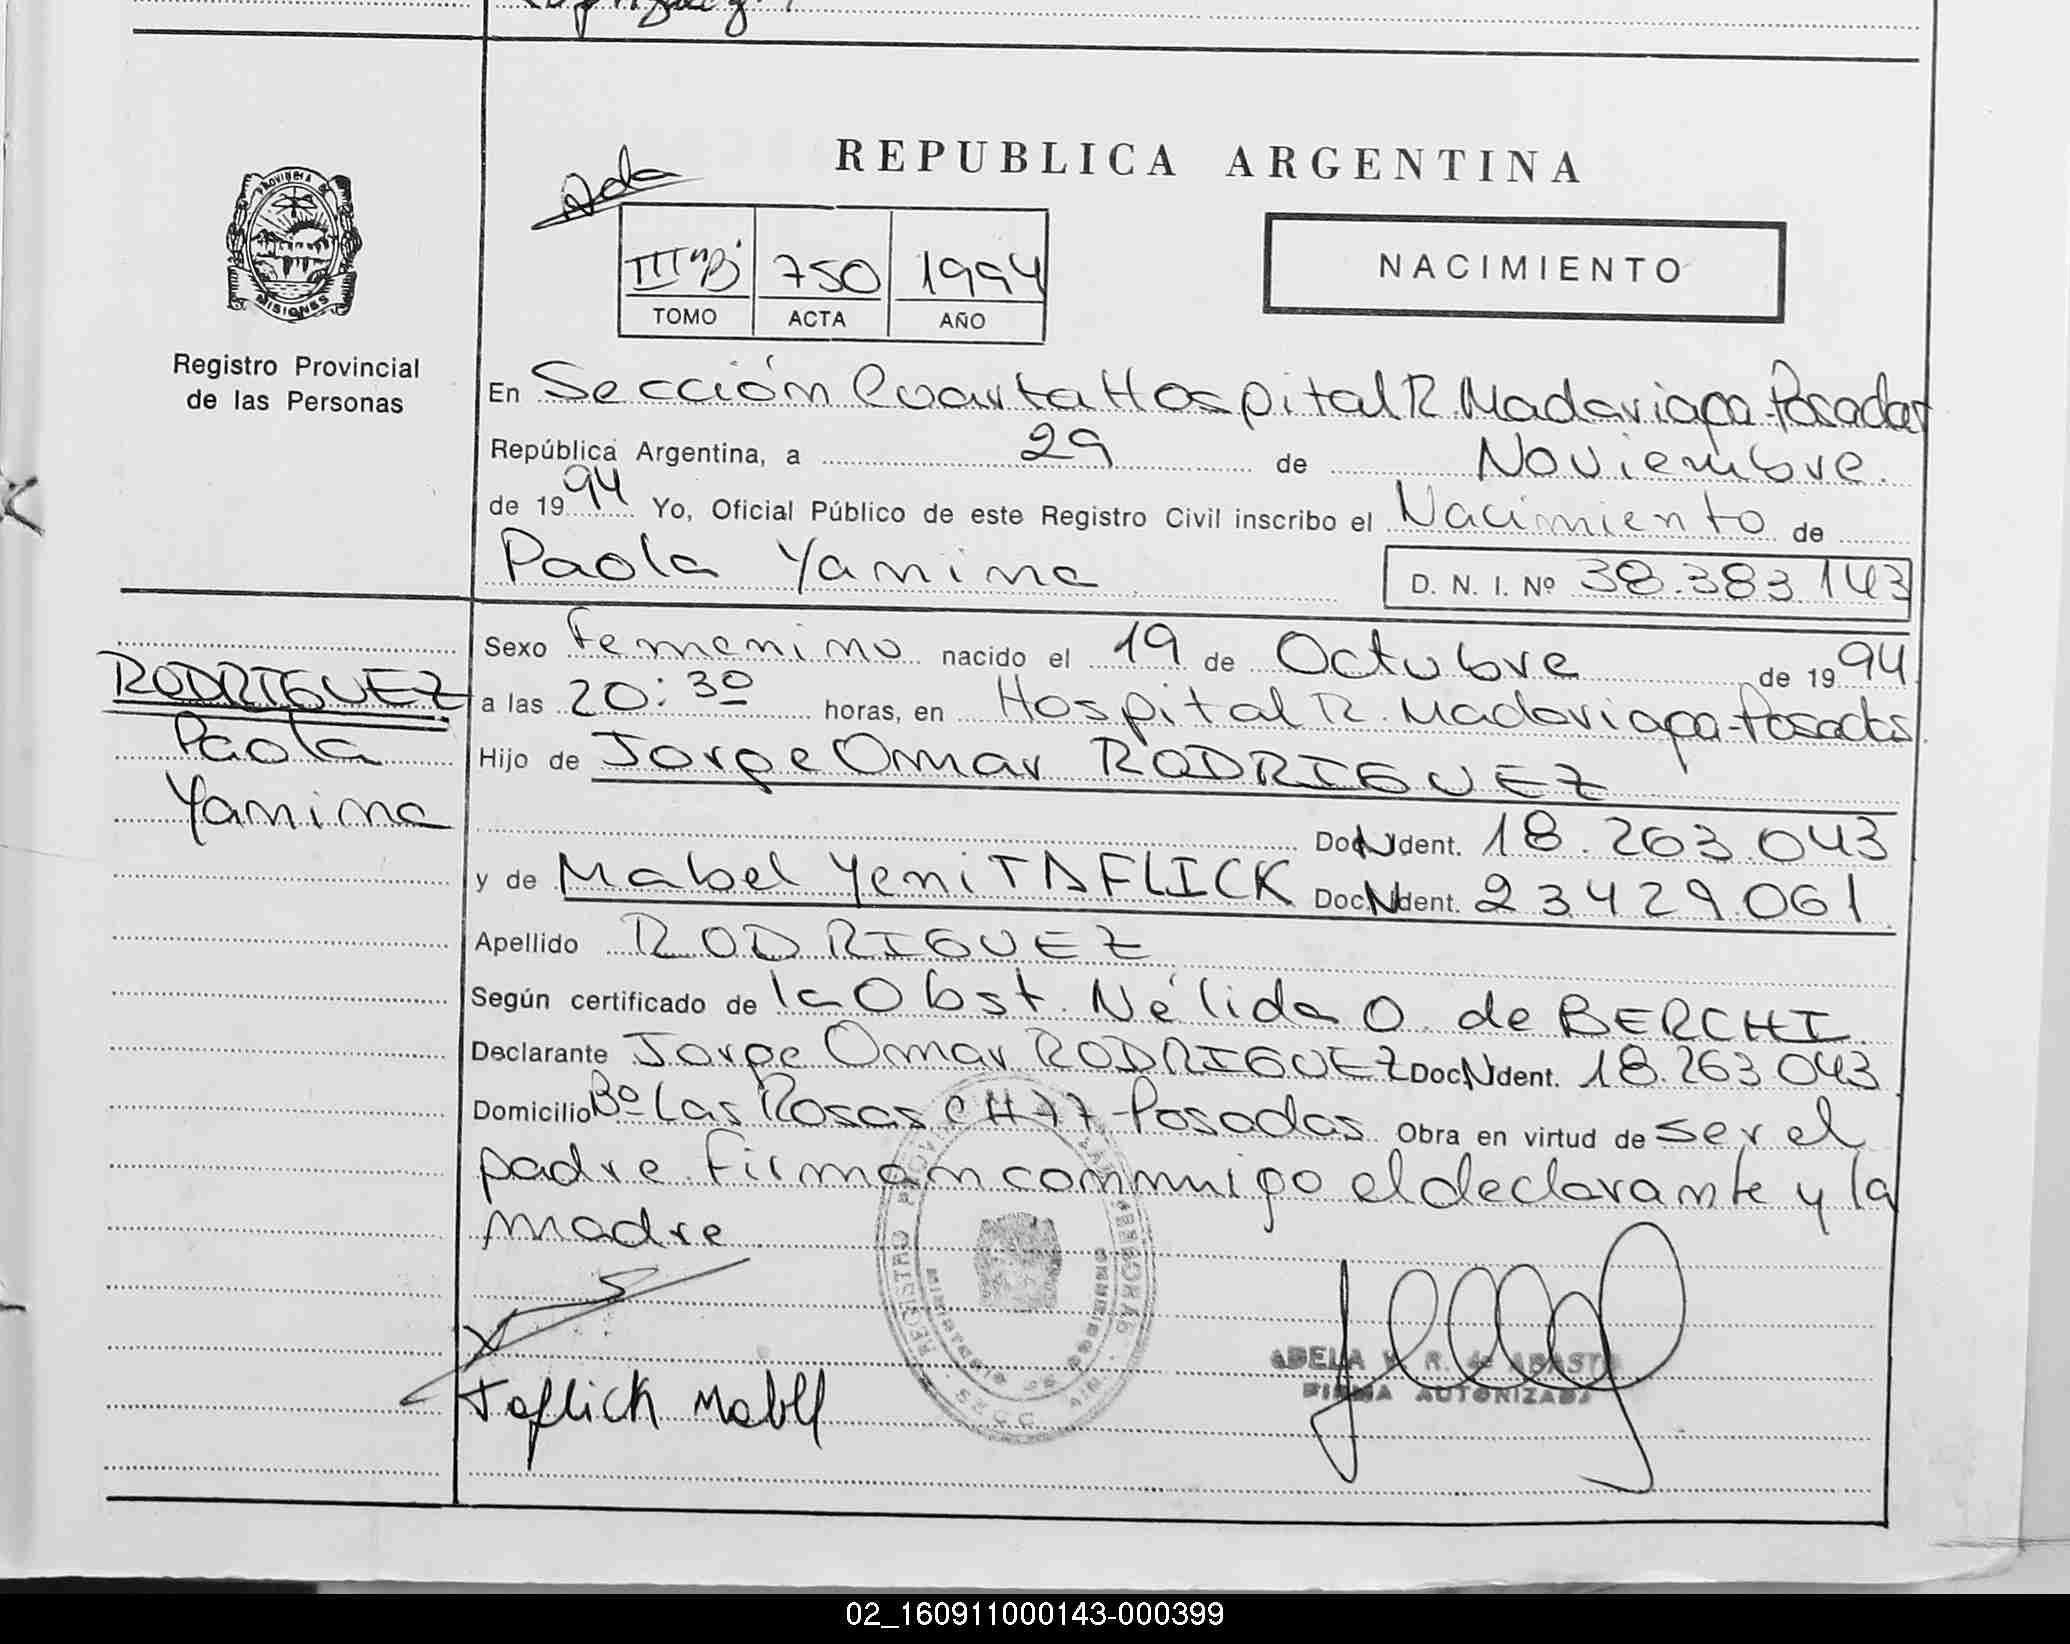 REPUBLICA ARGENTINA
Ada
PROVINCIA DE
MISIONES
III "B" 750 1994
TOMO ACTA AÑO
NACIMIENTO
Registro Provincial
de las Personas
En Sección Cuarta Hospital R. Madariaga-Posadas
República Argentina, a 29 de Noviembre.
de 1994 Yo, Oficial Público de este Registro Civil inscribo el Nacimiento de
Paola Yanina
D. N. I. Nº 38.383.143
RODRIGUEZ
Paola
Yanina
Sexo femenino nacido el 19 de Octubre de 1994
a las 20:30 horas, en Hospital R. Madariaga-Posadas
Hijo de Jorge Omar RODRIGUEZ
Doc N Ident. 18.263.043
y de Mabel Yeni TAFLICK Doc N Ident. 23429061
Apellido RODRIGUEZ
Según certificado de la Obst. Nélida O. de BERCHI
Declarante Jorge Omar RODRIGUEZ Doc N Ident. 18.263.043
Domicilio Bº Las Rosas CH 77-Posadas Obra en virtud de ser el
padre. firman conmigo el declarante y la
madre
REGISTRO
Taflick Mabel
ADELA R. de
FIRMA AUTORIZADA
02_160911000143-000399